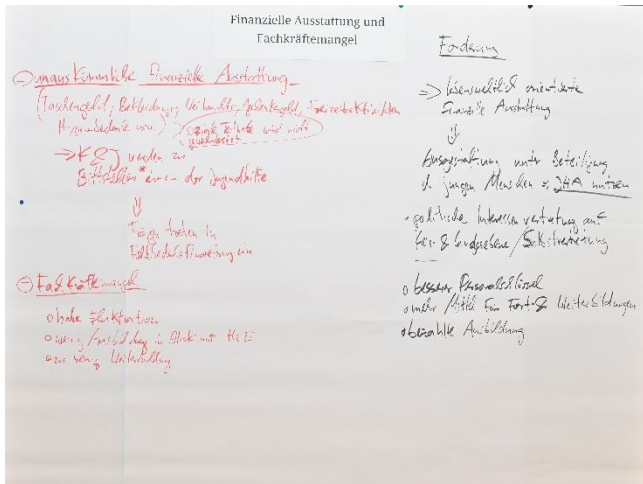 Finanzielle Ausstattung und
Fachkräftemangel
unauskömmliche Finanzielle Ausstattung
(Taschengeld, Bekleidung, Weihnachts, Freizeitaktivitäten
Hygienebedarfe
soziale Teilhabe wird nicht
=> K & J werden zu
Bittsteller*innen der Jugendhilfe
⇓
Träger treten in
Fachkräftemangel
o hohe Fluktuation
o wenig Ausbildung in Blick auf HzE
o zu wenig Weiterbildung
Forderung
=> lebensweltlich orientierte
Finanzielle Ausstattung
⇓
Ausgestaltung unter Beteiligung
d. jungen Menschen JHA nutzen
- politische Interessenvertretung auf
& Landesebene / Selbstvertretung
o besserer Personalschlüssel
o mehr Mittel für Fort- & Weiterbildungen
o bezahlte Ausbildung